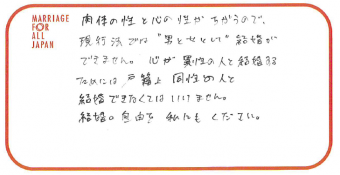 MARRIAGE
FOR
ALL
JAPAN
肉体の性と心の性がちがうので、
現行法では“男と女として”結婚が
できません。心が異性の人と結婚する
ためには戸籍上同性の人と
結婚できなくてはいけません。
結婚の自由を私にもください。